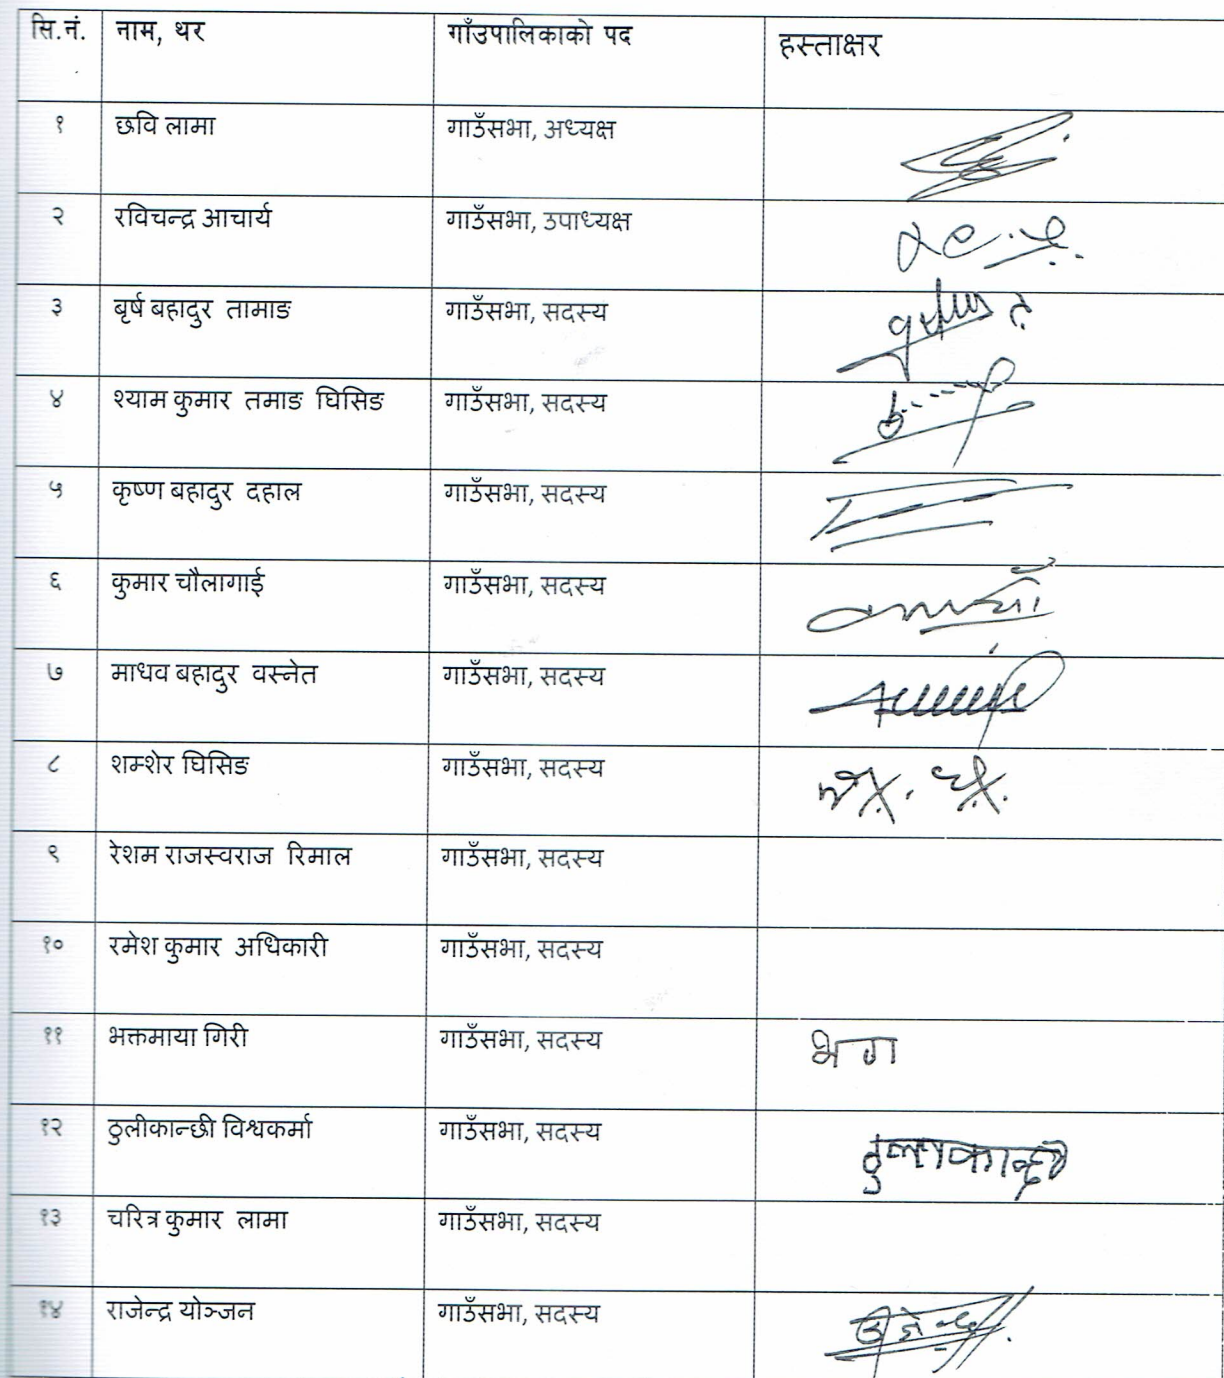 सि.नं. नाम, थर गाँउपालिकाको पद हस्ताक्षर
१ छवि लामा गाउँसभा, अध्यक्ष
२ रविचन्द्र आचार्य गाउँसभा, उपाध्यक्ष
३ बृर्ष बहादुर तामाङ गाउँसभा, सदस्य
४ श्याम कुमार तमाङ घिसिङ गाउँसभा, सदस्य
५ कृष्ण बहादुर दहाल गाउँसभा, सदस्य
६ कुमार चौलागाई गाउँसभा, सदस्य
७ माधव बहादुर वस्नेत गाउँसभा, सदस्य
८ शम्शेर घिसिङ गाउँसभा, सदस्य
९ रेशम राजस्वराज रिमाल गाउँसभा, सदस्य
१० रमेश कुमार अधिकारी गाउँसभा, सदस्य
११ भक्तमाया गिरी गाउँसभा, सदस्य
१२ ठुलीकान्छी विश्वकर्मा गाउँसभा, सदस्य
१३ चरित्र कुमार लामा गाउँसभा, सदस्य
१४ राजेन्द्र योञ्जन गाउँसभा, सदस्य